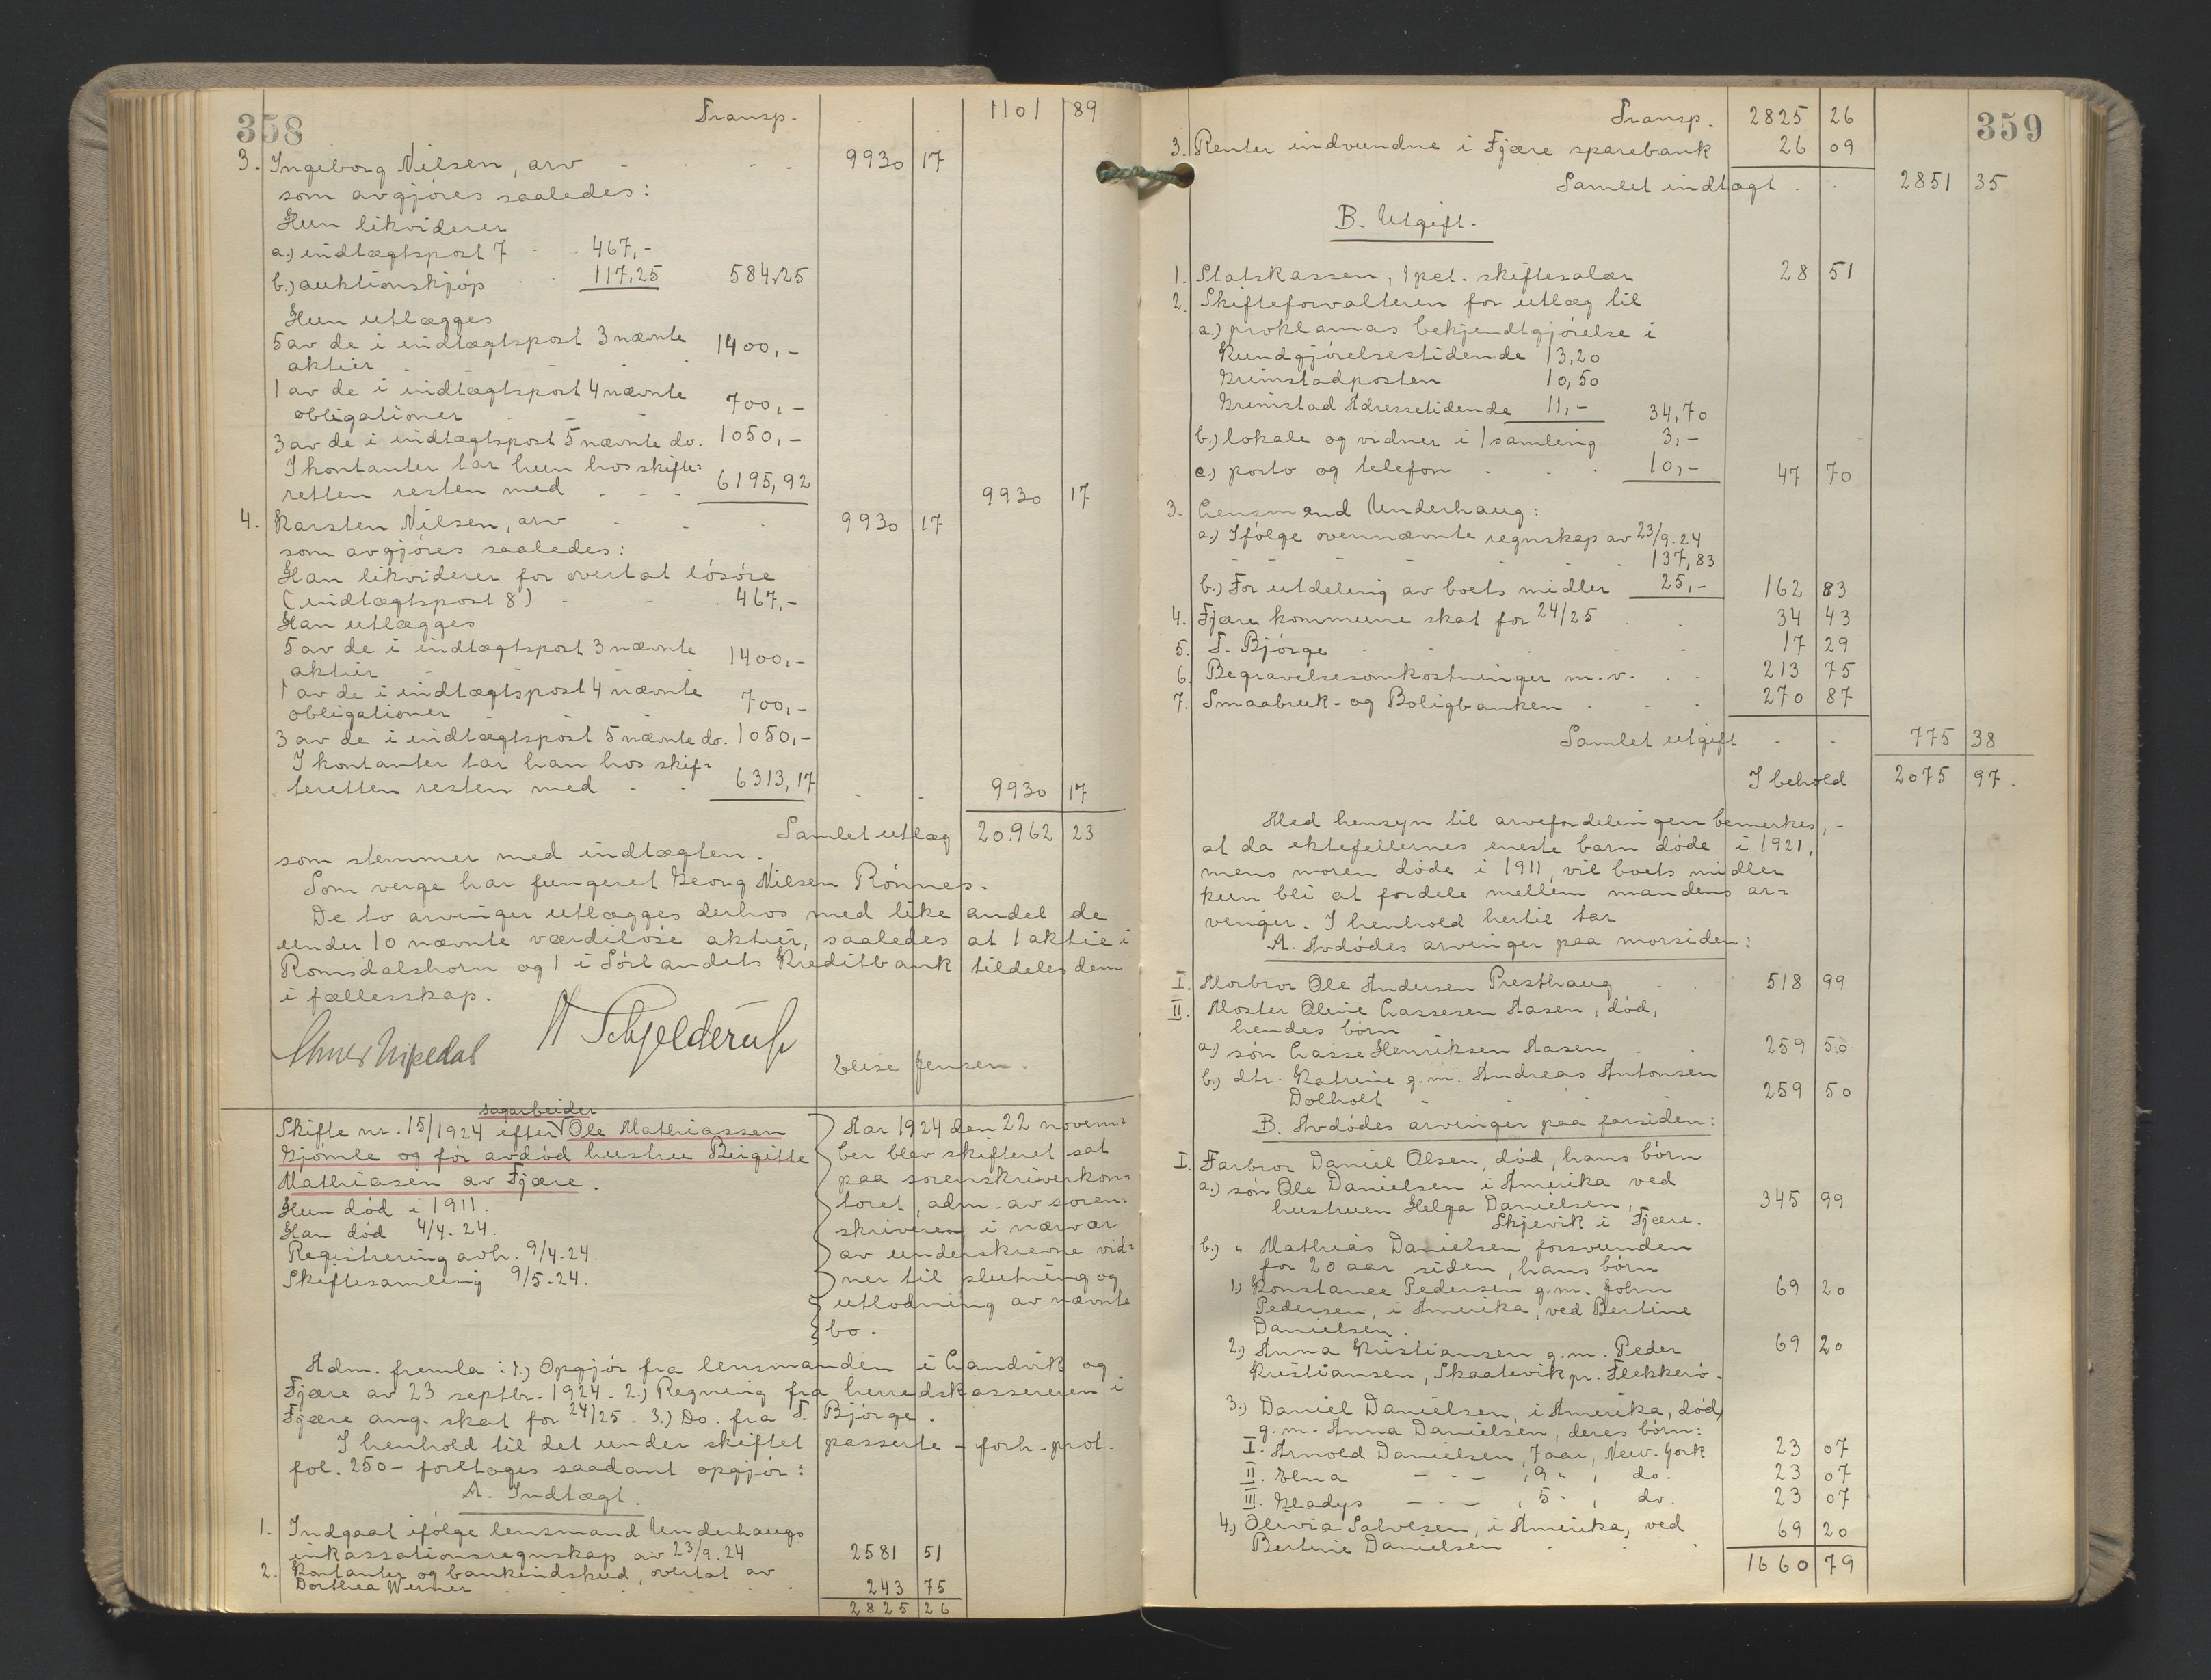 358
Transp. 1101 89
3. Ingeborg Nilsen, arv 9930 17
som avgjøres saaledes:
Hun likviderer
a.) indtægtspost 7 467,-
b.) auktionskjøp 117,25 584,25
Hun utlægges
5 av de i indtægtspost 3 nævnte
aktier 1400,-
1 av de i indtægtspost 4 nævnte
obligationer 700,-
3 av de i indtægtspost 5 nævnte do. 1050,-
I kontanter tar hun hos skifte-
retten resten med 6195,92 9930 17
4. Karsten Nilsen, arv 9930 17
som avgjøres saaledes:
Han likviderer for overtat løsøre
(indtægtspost 8) 467,-
Han utlægges
5 av de i indtægtspost 3 nævnte
aktier 1400,-
1 av de i indtægtspost 4 nævnte
obligationer 700,-
3 av de i indtægtspost 5 nævnte do. 1050,-
I kontanter tar han hos skif-
teretten resten med 6313,17 9930 17
Samlet utlæg 20.962 23
som stemmer med indtægten.
Som verge har fungeret Georg Nilsen Rønnes.
De to arvinger utlægges derhos med like andel de
under 10 nævnte værdiløse aktier, saaledes at 1 aktie i
Romsdalshorn og 1 i Sørlandets Kreditbank tildeles dem
i fællesskap.
N Schjelderup
Nipedal
Elise Jensen.
sagarbeider
Skifte nr. 15/1924 efter Ole Mathiassen
Gjømle og før avdød hustru Birgitte
Mathiasen av Fjære.
Hun død i 1911.
Han død 4/4-24.
Registrering avh. 9/4-24.
Skiftesamling 9/5-24.
Aar 1924 den 22 novem-
ber blev skifteret sat
paa sorenskriverkon-
toret, adm. av soren-
skriveren i nærvær
av underskrevne vid-
ner til slutning og
utlodning av nævnte
bo.
Adm. fremla: 1.) Opgjør fra lensmanden i Landvik og
Fjære av 23 septbr. 1924. 2.) Regning fra herredskassereren i
Fjære ang. skat for 24/25. 3.) Do. fra T. Bjørge.
I henhold til det under skiftet passerte - forh.prot.
fol. 250 - foretages saadant opgjør:
A. Indtægt.
1. Indgaat ifølge lensmand Underhaugs
inkassationsregnskap av 23/9.24 2581 51
2. Kontanter og bankindskud, overtat av
Dorthea Werner 243 75
2825 26
359
Transp. 2825 26
3. Renter indvundne i Fjære sparebank 26 09
Samlet indtægt 2851 35
B. Utgift.
1. Statskassen, 1 pct. skiftesalær 28 51
2. Skifteforvalteren for utlæg til
a.) proklamas bekjendtgjørelse i
Kundgjørelsestidende 13,20
Grimstadposten 10,50
Grimstad Adressetidende 11,- 34,70
b.) lokale og vidner i 1 samling 3,-
c.) porto og telefon 10,- 47 70
3. Lensmand Underhaug:
a.) Ifølge ovennævnte regnskap av 23/9.24
137,83
b.) For utdeling av boets midler 25,- 162 83
4. Fjære kommune skat for 24/25 34 43
5. T. Bjørge 17 29
6. Begravelsesomkostninger m.v. 213 75
7. Smaabruk- og Boligbanken 270 87
Samlet utgift 775 38
I behold 2075 97.
Med hensyn til arvefordelingen bemerkes,-
at da ektefellernes eneste barn døde i 1921,
mens moren døde i 1911, vil boets midler
kun bli at fordele mellem mandens ar-
vinger. I henhold hertil tar
A. Avdødes arvinger paa morsiden:
I. Morbror Ole Andersen Presthaug 518 99
II. Moster Oline Lassesen Aasen, død,
hendes børn
a.) søn Lasse Henriksen Aasen 259 50
b.) dtr. Katrine g.m. Andreas Antonsen
Dolholt 259 50
B. Avdødes arvinger paa farsiden:
I. Farbror Daniel Olsen, død, hans børn
a.) søn Ole Danielsen i Amerika ved
hustruen Helga Danielsen, 345 99
Skjevik i Fjære.
b.) " Mathias Danielsen forsvunden
for 20 aar siden, hans børn
1.) Konstance Pedersen g.m. John 69 20
Pedersen, i Amerika, ved Bertine
Danielsen.
2.) Anna Kristiansen g.m. Peder 69 20
Kristiansen, Skaalevik pr. Flekkerø.
3.) Daniel Danielsen, i Amerika, død,
g.m. Anna Danielsen, deres børn:
I. Arnold Danielsen, 7 aar, New-York 23 07
II. Elna - - , 9 " , do. 23 07
III. Gladys - - , 5 " , do. 23 07
4.) Olivia Salvesen, i Amerika, ved 69 20
Bertine Danielsen
1660 79